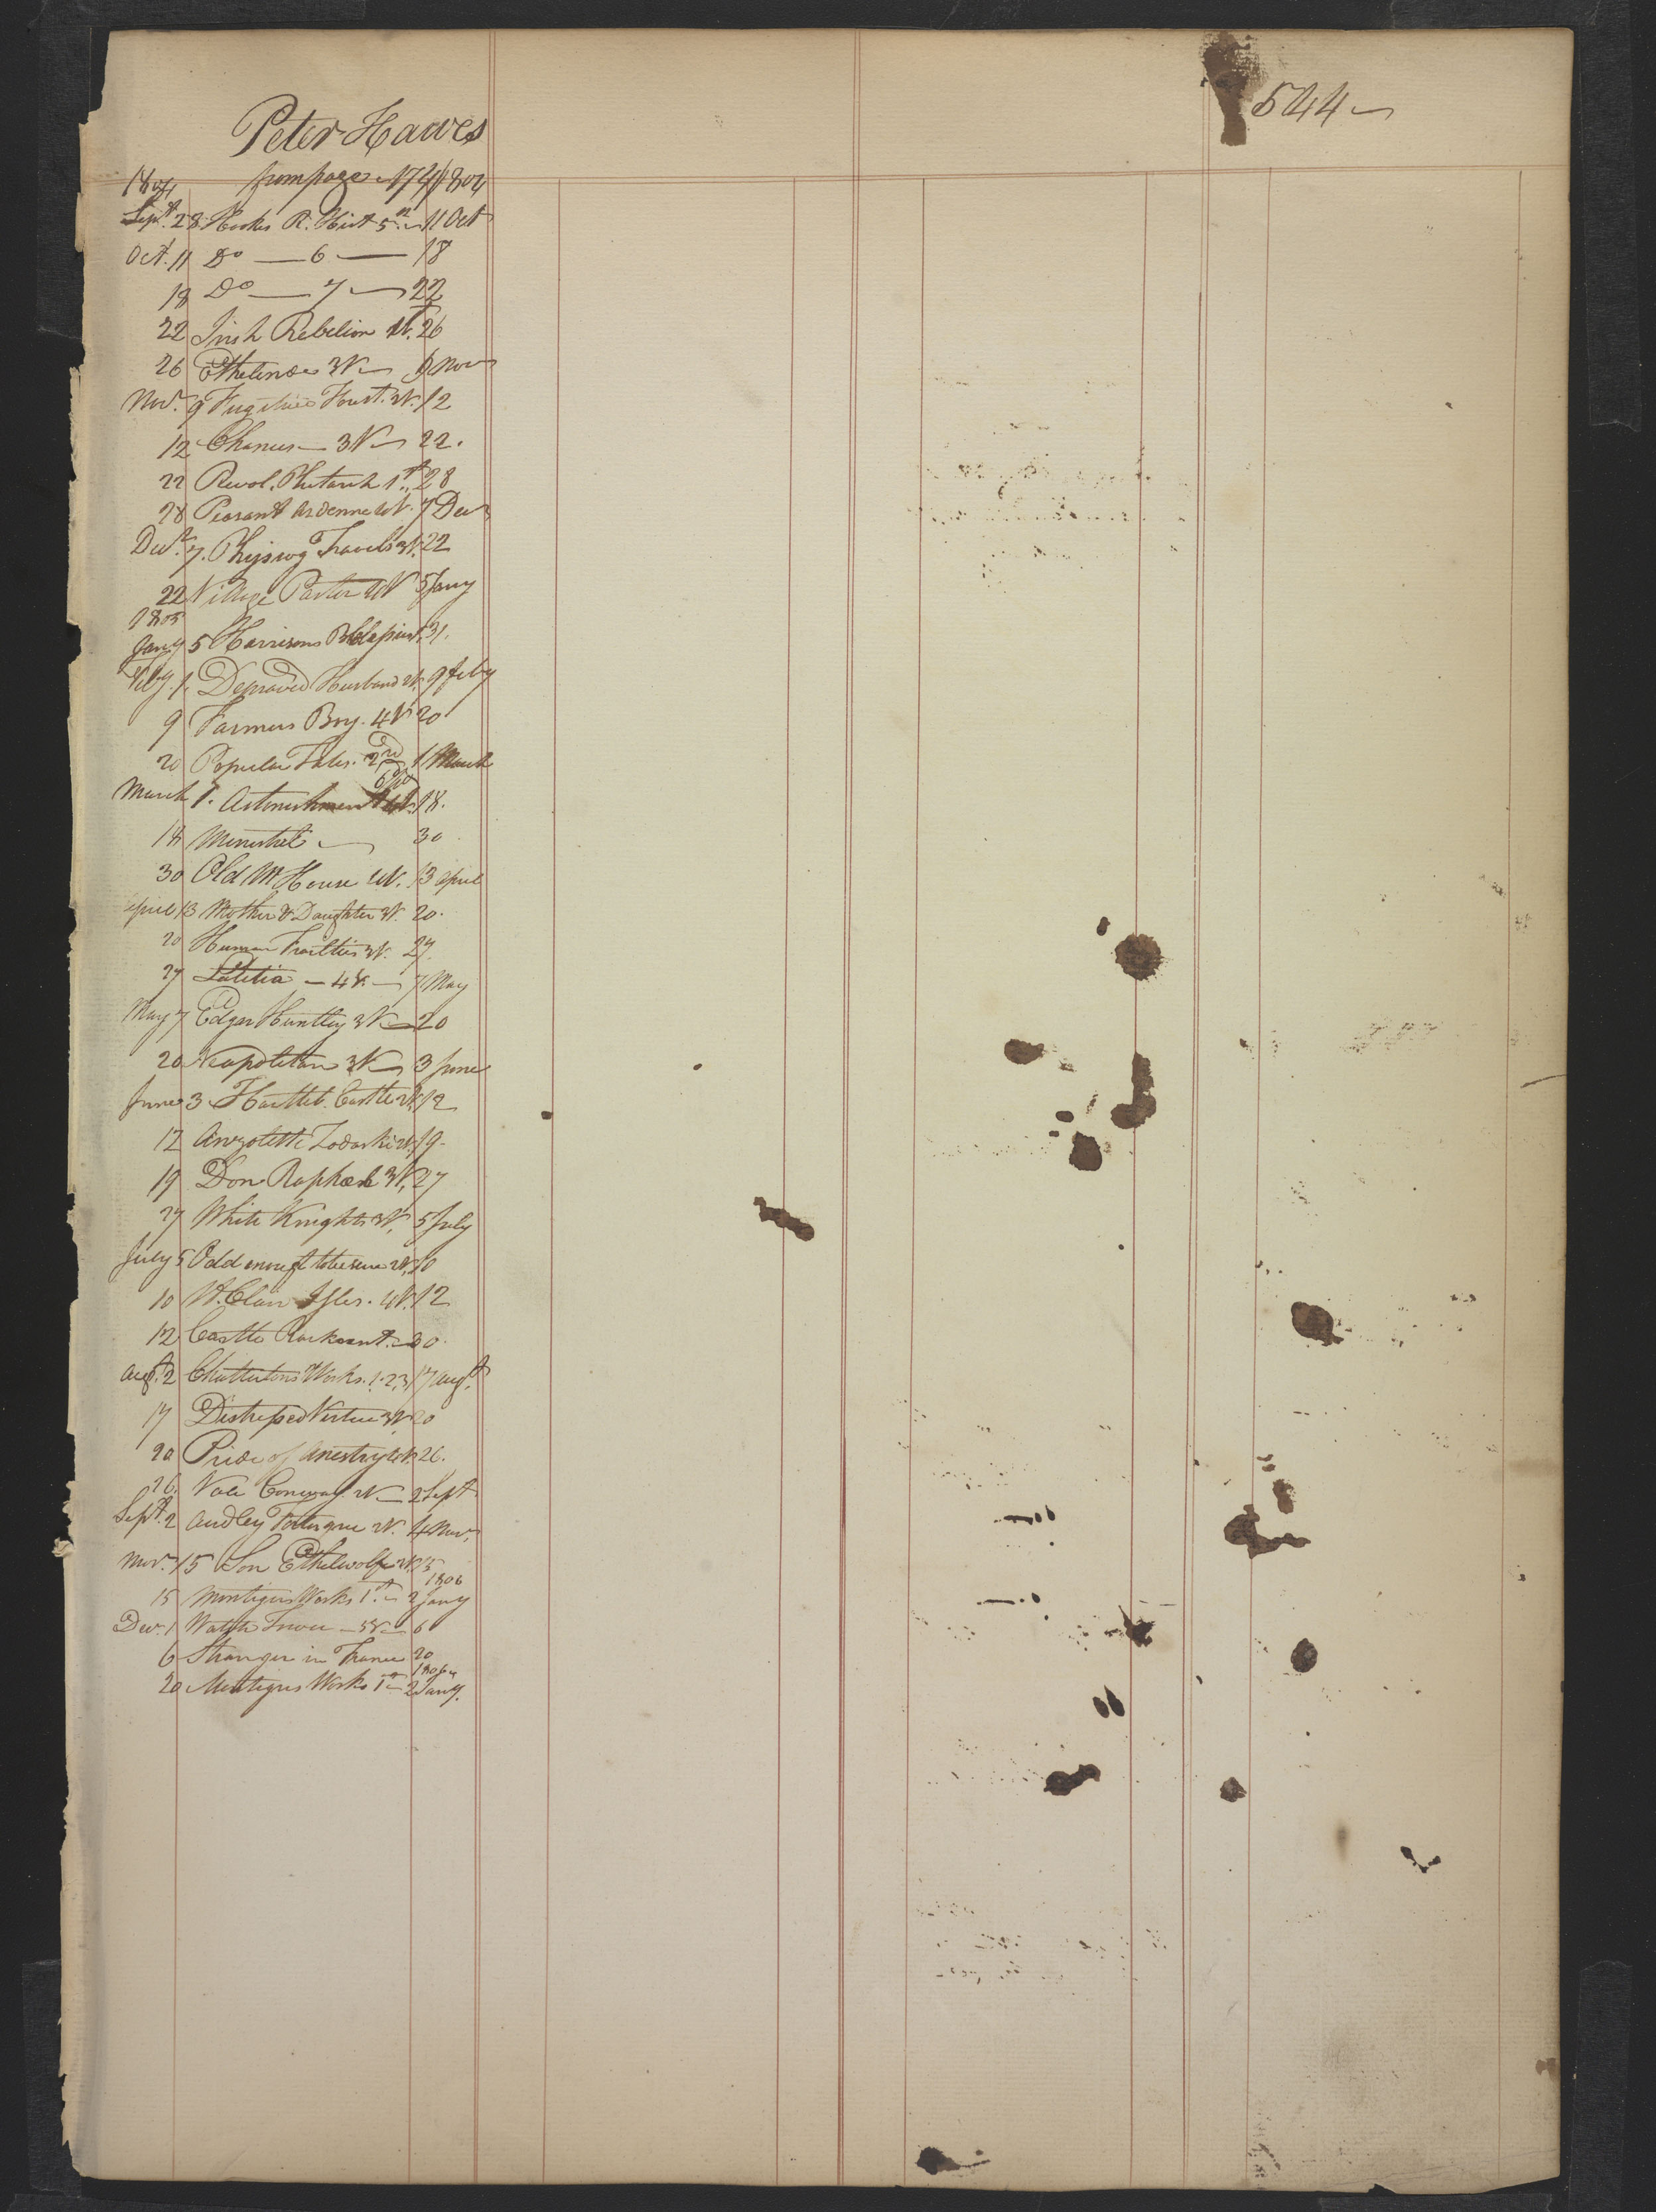 544
Peter Hawes
1804 from page 174 1804
Sept. 28 Hookes R. Hist 5th 11 Oct
Oct. 11 Do — 6 — 18
18 Do — 7 — 22
22 Irish Rebelion 1st. 26
26 Ethelinde 3V 9 Nov
Nov. 9 Fugitive Forst. 3V. 12
12 Charres 3V 22.
22 Revol. Plutarch 1st. 28
28 Peasant Ardenne 4V. 7 Decr
Decr. 7. Physiog Travels 3V. 22
22 Village Pastor 2V 5 Jany
1805
Jany 5 Harrisons 31.
Feby. 1. Depraved Husband 2V. 9 Feby
9 Farmers Boy. 4V 20
20 Popular Tales. 2nd 1 March
March 1. Astonishment 18.
18 Minstrel 30
30 Old M House 4V. 13 April
April 13 Mother & Daughter 3V. 20.
20 Human Frailties 3V. 27.
27 Letitia — 4V. — 7 May
May 7 Edgar Huntley 3V 20
20 Neapolitan 3V 3 June
June 3 Hartleb. Castle 2V. 12
12 Anzoletti Zadoski 2V. 19.
19 Don Raphael 3V. 27
27 White Knights 3V. 5 July
July 5 Odd enough to be sure 2V. 10
10 St. Clair Isles. 4V. 12
12 Castle Rackrent. 30.
Augt. 2 Chattertons Works. 1. 2,3 17 Augt.
17 Distressed Virtue 3V. 20
20 Pride of Anestry 4V. 26.
26. Vale Conway. 2V. 2 Sept
Sept. 2 Audley Fortesque 2V. 4 Nov.
Nov. 5 Son Ethelwolfe 2V. 15
1806
15 Montigus Works 1st. 2 Jany
Decr. 1 Watch Tower — 5V — 6
6 Stranger in France 20
1806
20 Montigus Works 1st 2 Jany.